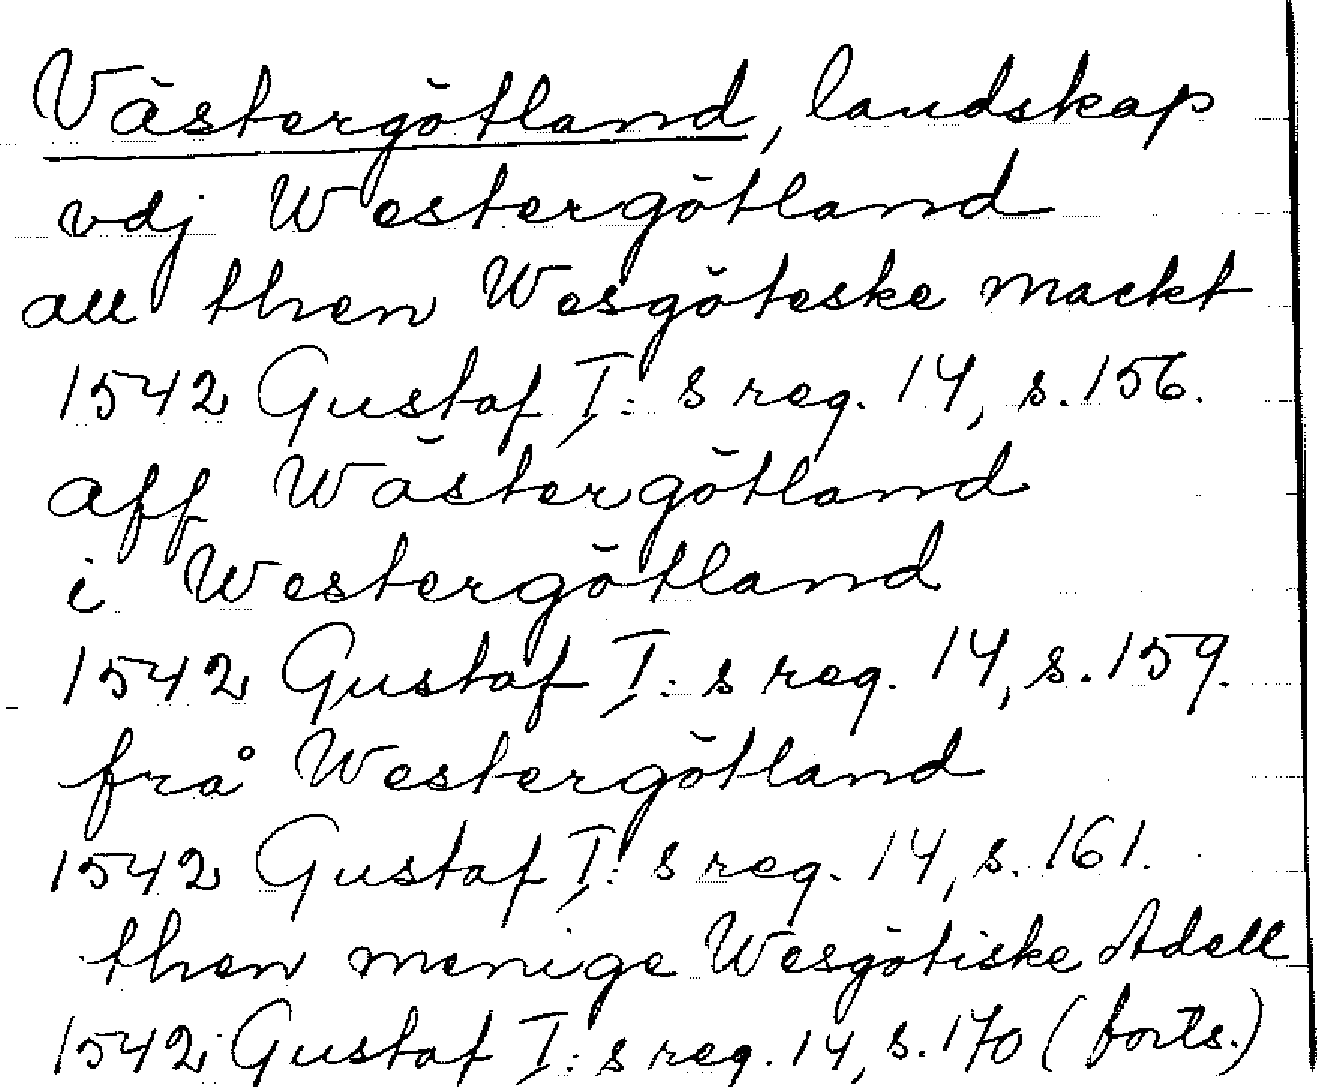 Västergötland, landskap
vdj Westergötland
all then Wesgöteske mackt
1542 Gustaf I:s reg. 14, s. 156.
aff Wästergötland
i Westergötland
1542 Gustaf I:s reg. 14, s. 159.
frå Westergötland
1542 Gustaf I:s reg. 14, s. 161.
then menige Wesgötiske Adell
1542 Gustaf I:s reg. 14, s. 170 (forts.)